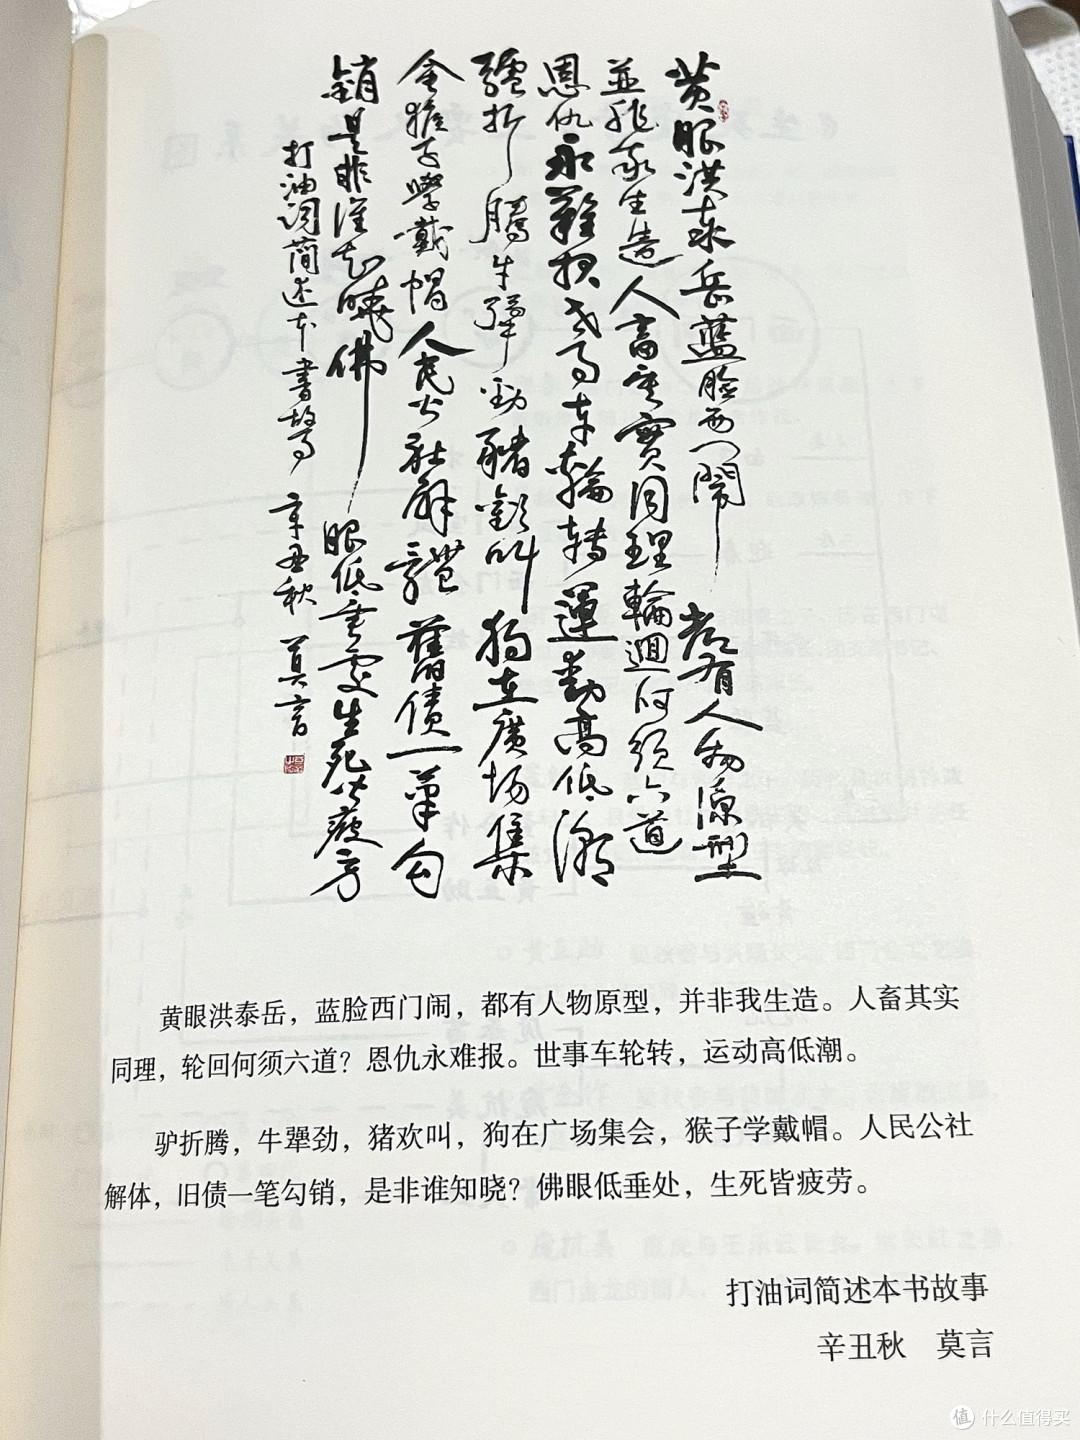 黄眼洪泰岳藍臉西门鬧 都有人物源型
並非我生造人畜其實同理輪迴何须六道
恩仇永難报世事车輪转運動高低潮
驢折騰牛犟勁豬歡叫狗在廣場集
會猴子學戴帽人民公社解體舊債一筆勾
銷是非谁知曉佛眼低垂處生死皆疲劳
打油词簡述本書故事 辛丑秋 莫言
黄眼洪泰岳，蓝脸西门闹，都有人物原型，并非我生造。人畜其实
同理，轮回何须六道？恩仇永难报。世事车轮转，运动高低潮。
驴折腾，牛犟劲，猪欢叫，狗在广场集会，猴子学戴帽。人民公社
解体，旧债一笔勾销，是非谁知晓？佛眼低垂处，生死皆疲劳。
打油词简述本书故事
辛丑秋 莫言
值 什么值得买